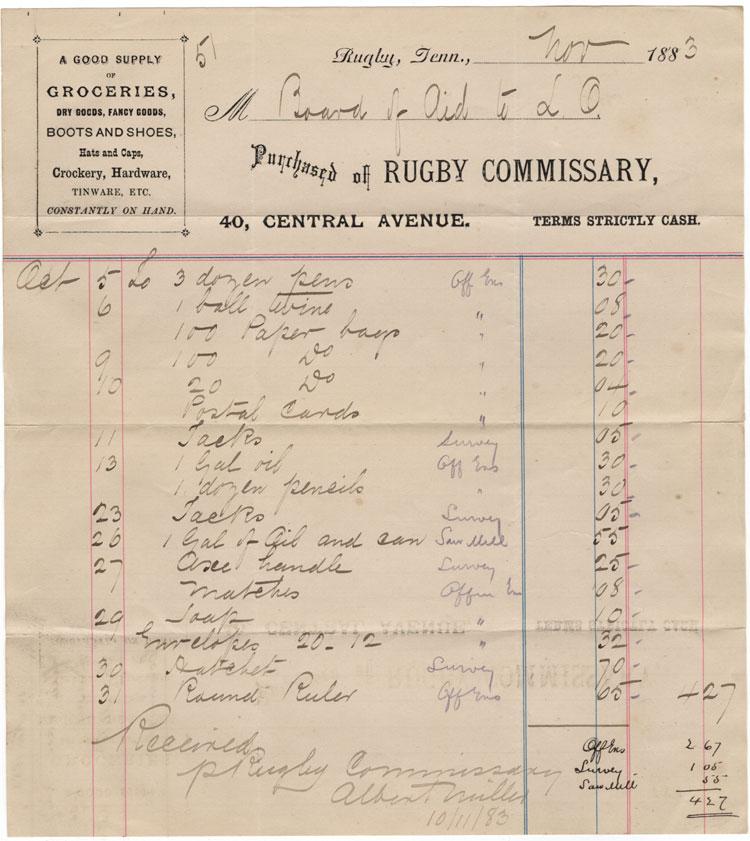 51
A GOOD SUPPLY
OF
GROCERIES,
DRY GOODS, FANCY GOODS,
BOOTS AND SHOES,
Hats and Caps,
Crockery, Hardware,
TINWARE, ETC.
CONSTANTLY ON HAND.
Rugby, Tenn., Nov 1883
M Board of Aid to L. O.
Purchased of RUGBY COMMISSARY,
40, CENTRAL AVENUE. TERMS STRICTLY CASH.
Oct 5 to 3 dozen pens Off Ens 30
6 1 ball twine " 08
100 Paper bags " 20
9 100 Do " 20
10 20 Do " 04
Postal cards " 10
11 Tacks Survey 05
13 1 Gal oil Off Ens 30
1 dozen pencils " 30
23 Tacks Survey 05
26 1 Gal of Oil and can Saw Mill 55
27 Axe handle Survey 25
Matches Office Ens 08
29 Soap " 10
Envelopes 20-12 " 32
30 Hatchet Survey 70
31 Round Ruler Off Ens 65 427
Received
p Rugby Commissary
Albert Miller
10/11/83
Off Ens 2 67
Survey 1 05
Saw Mill 55
427